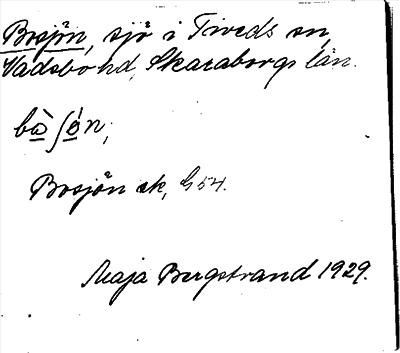 Bosjön, sjö i Tiveds sn,
Vadsbo hd, Skaraborgs län.
bòʃö́n;
Bosjön ek, G 54.
Maja Bergstrand 1929.